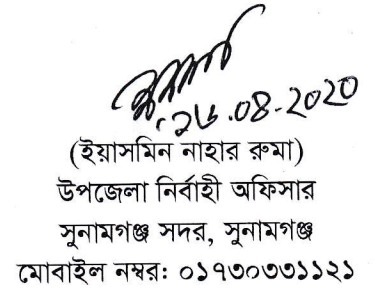 ২৬.০৪.২০২০
(ইয়াসমিন নাহার রুমা)
উপজেলা নির্বাহী অফিসার
সুনামগঞ্জ সদর, সুনামগঞ্জ
মোবাইল নম্বর: ০১৭৩০৩৩১১২১